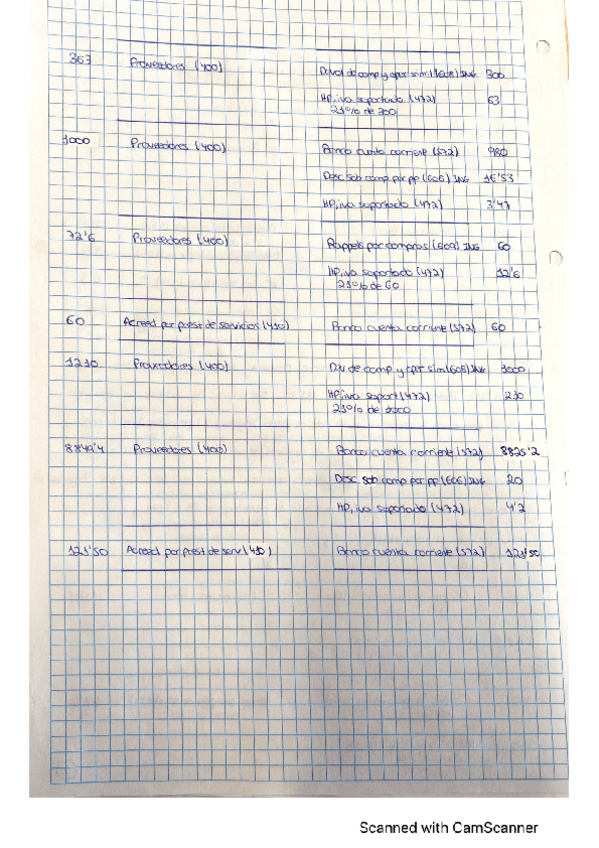 363 Proveedores (400) Devol de comp y oper sim (608) ING 300
HP, iva soportado (472) 63
21% de 300
1000 Proveedores (400) Banco cuenta corriente (572) 980
Desc sob comp por pp (606) ING 16'53
HP, iva soportado (472) 3'47
72'6 Proveedores (400) Rappels por compras (609) ING 60
HP, iva soportado (472) 12'6
21% de 60
60 Acreed por prest de servicios (410) Banco cuenta corriente (572) 60
1210 Proveedores (400) Dev de comp y oper sim (608) ING 1000
HP, iva soport (472) 210
21% de 1000
8849'4 Proveedores (400) Banco cuenta corriente (572) 8825'2
Desc sob comp por pp (606) ING 20
HP, iva soportado (472) 4'2
121'50 Acreed por prest de serv (410) Banco cuenta corriente (572) 121'50
Scanned with CamScanner